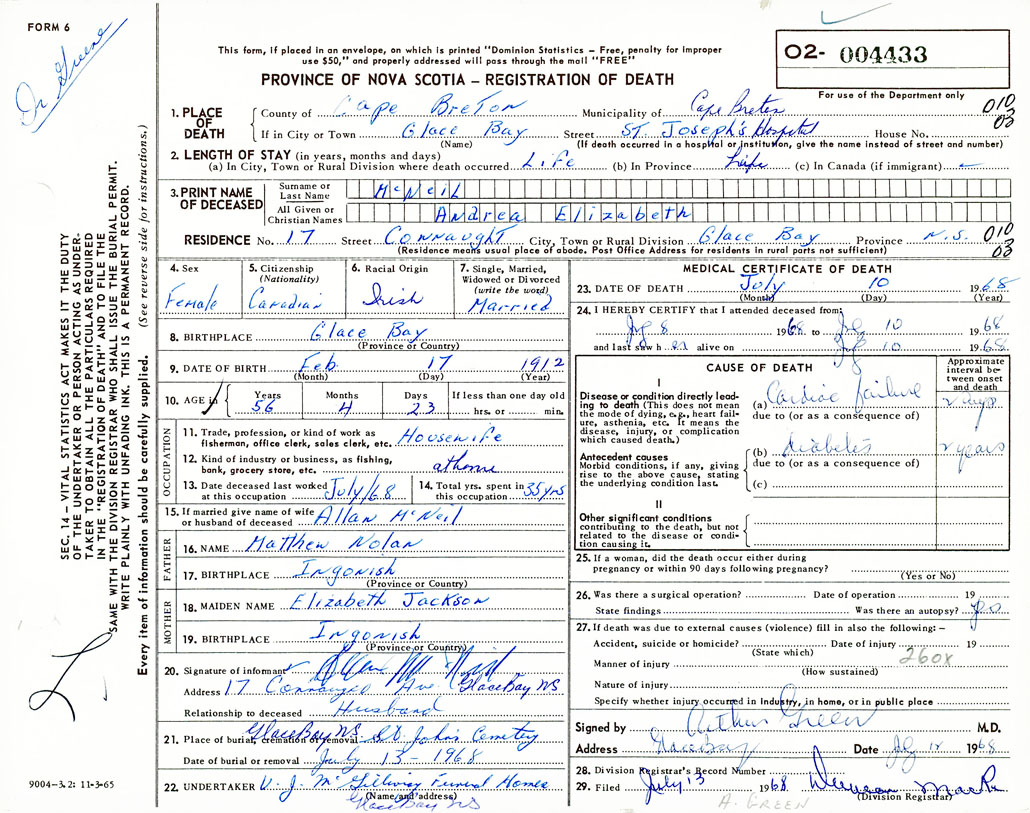 FORM 6
Dr Greene
This form, if placed in an envelope, on which is printed "Dominion Statistics – Free, penalty for improper
use $50," and properly addressed will pass through the mail "FREE"
PROVINCE OF NOVA SCOTIA – REGISTRATION OF DEATH
O2- 004433
For use of the Department only
1. PLACE OF DEATH County of Cape Breton Municipality of Cape Breton 010
If in City or Town Glace Bay Street St. Joseph's Hospital House No. 03
(Name) (If death occurred in a hospital or institution, give the name instead of street and number)
2. LENGTH OF STAY (in years, months and days)
(a) In City, Town or Rural Division where death occurred Life (b) In Province Life (c) In Canada (if immigrant)
3. PRINT NAME OF DECEASED Surname or Last Name McNeil
All Given or Christian Names Andrea Elizabeth
RESIDENCE No. 17 Street Connaught City, Town or Rural Division Glace Bay Province N.S. 010
(Residence means usual place of abode. Post Office Address for residents in rural parts not sufficient) 03
4. Sex Female
5. Citizenship (Nationality) Canadian
6. Racial Origin Irish
7. Single, Married, Widowed or Divorced (write the word) Married
8. BIRTHPLACE Glace Bay
(Province or Country)
9. DATE OF BIRTH Feb. 17 1912
(Month) (Day) (Year)
10. AGE in Years 56 Months 4 Days 23 If less than one day old hrs. or min.
OCCUPATION
11. Trade, profession, or kind of work as fisherman, office clerk, sales clerk, etc. Housewife
12. Kind of industry or business, as fishing, bank, grocery store, etc. at home
13. Date deceased last worked at this occupation July/68
14. Total yrs. spent in this occupation 35 yrs
15. If married give name of wife or husband of deceased Allan McNeil
FATHER
16. NAME Matthew Nolan
17. BIRTHPLACE Ingonish
(Province or Country)
MOTHER
18. MAIDEN NAME Elizabeth Jackson
19. BIRTHPLACE Ingonish
(Province or Country)
20. Signature of informant
Address 17 Connaught Ave Glace Bay NS
Relationship to deceased Husband
21. Place of burial, cremation or removal Glace Bay NS St Johns Cemetery
Date of burial or removal July 13 – 1968
22. UNDERTAKER V. J. McGillivray Funeral Home
(Name and address)
Glace Bay NS
MEDICAL CERTIFICATE OF DEATH
23. DATE OF DEATH July 10 1968
(Month) (Day) (Year)
24. I HEREBY CERTIFY that I attended deceased from
Jy 8 1968 to Jy 10 1968
and last saw her alive on Jy 10 1968
CAUSE OF DEATH
Approximate interval between onset and death
I
Disease or condition directly leading to death (This does not mean the mode of dying, e.g., heart failure, asthenia, etc. It means the disease, injury, or complication which caused death.)
(a) Cardiac failure 2 days
due to (or as a consequence of)
Antecedent causes
Morbid conditions, if any, giving rise to the above cause, stating the underlying condition last.
(b) diabetes years
due to (or as a consequence of)
(c)
II
Other significant conditions contributing to the death, but not related to the disease or condition causing it.
25. If a woman, did the death occur either during
pregnancy or within 90 days following pregnancy?
(Yes or No)
26. Was there a surgical operation? Date of operation 19
State findings Was there an autopsy?
27. If death was due to external causes (violence) fill in also the following: –
Accident, suicide or homicide? Date of injury 19
(State which)
260X
Manner of injury
(How sustained)
Nature of injury
Specify whether injury occurred in Industry, in home, or in public place
Signed by Arthur Green M.D.
Address Glace Bay Date Jy 12 1968
28. Division Registrar's Record Number
29. Filed July 13 1968 Duncan
(Division Registrar)
A. GREEN
SEC. 14 – VITAL STATISTICS ACT MAKES IT THE DUTY
OF THE UNDERTAKER OR PERSON ACTING AS UNDER-
TAKER TO OBTAIN ALL THE PARTICULARS REQUIRED
IN THE "REGISTRATION OF DEATH" AND TO FILE THE
SAME WITH THE DIVISION REGISTRAR WHO SHALL ISSUE THE BURIAL PERMIT.
WRITE PLAINLY WITH UNFADING INK. THIS IS A PERMANENT RECORD.
Every item of information should be carefully supplied. (See reverse side for instructions.)
9004–3.2: 11-3-65